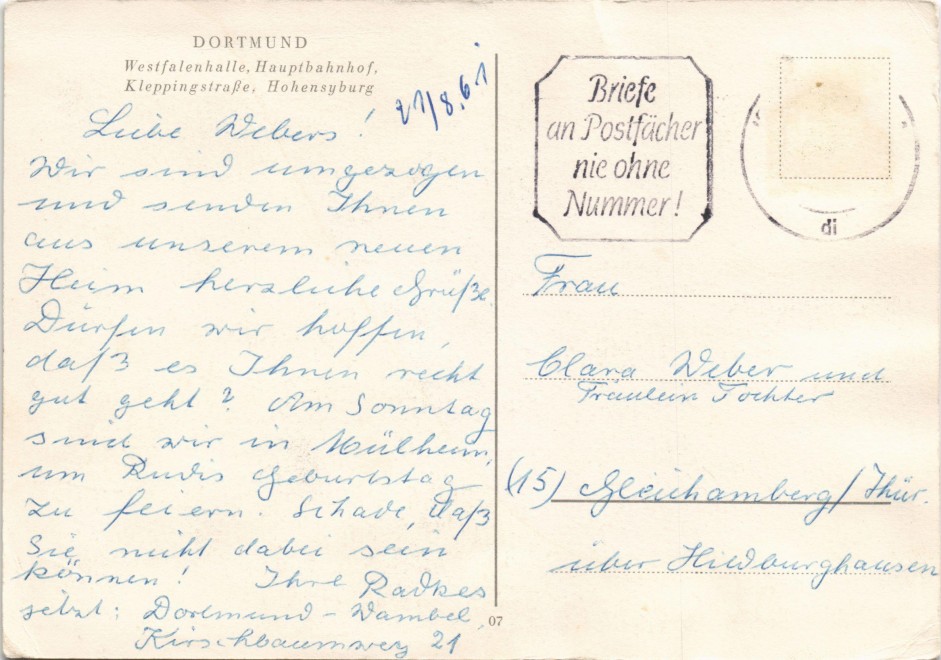 DORTMUND
Westfalenhalle, Hauptbahnhof,
Kleppingstraße, Hohensyburg
21/8.61
Liebe Webers!
Wir sind umgezogen
und senden Ihnen
aus unserem neuen
Heim herzliche Grüße.
Dürfen wir hoffen,
daß es Ihnen recht
gut geht? Am Sonntag
sind wir in Mülheim,
um Rudis Geburtstag
zu feiern. Schade, daß
Sie nicht dabei sein
können! Ihre Radkes
jetzt: Dortmund-Wambel,
Kirschbaumweg 21
07
Briefe
an Postfächer
nie ohne
Nummer!
di
Frau
Clara Weber und
Fräulein Tochter
(15) Gleichamberg/Thür.
über Hildburghausen